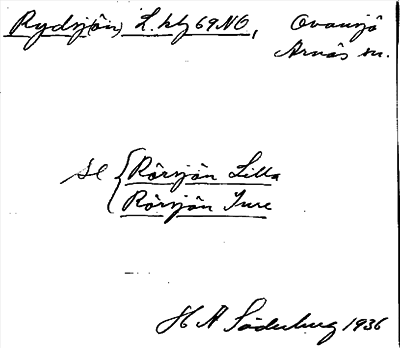 Rydsj(ön) L. blz 69 NO, Ovansjö
Arnäs sn.
se { Rörsjön Lilla
Rörsjön Inre
H A Söderberg 1936